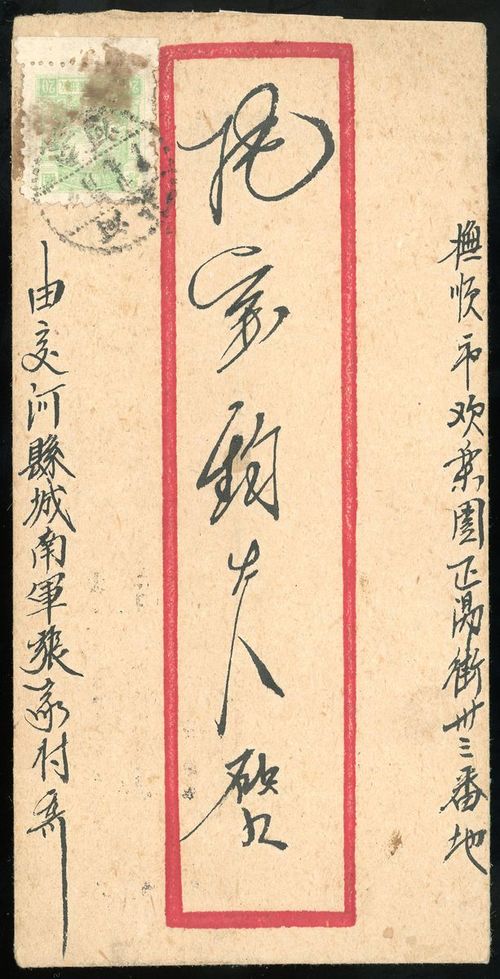 撫順市欢楽園正陽街卅三番地
宗鈞大人啓
由交河縣城南軍張家村寄
20
20